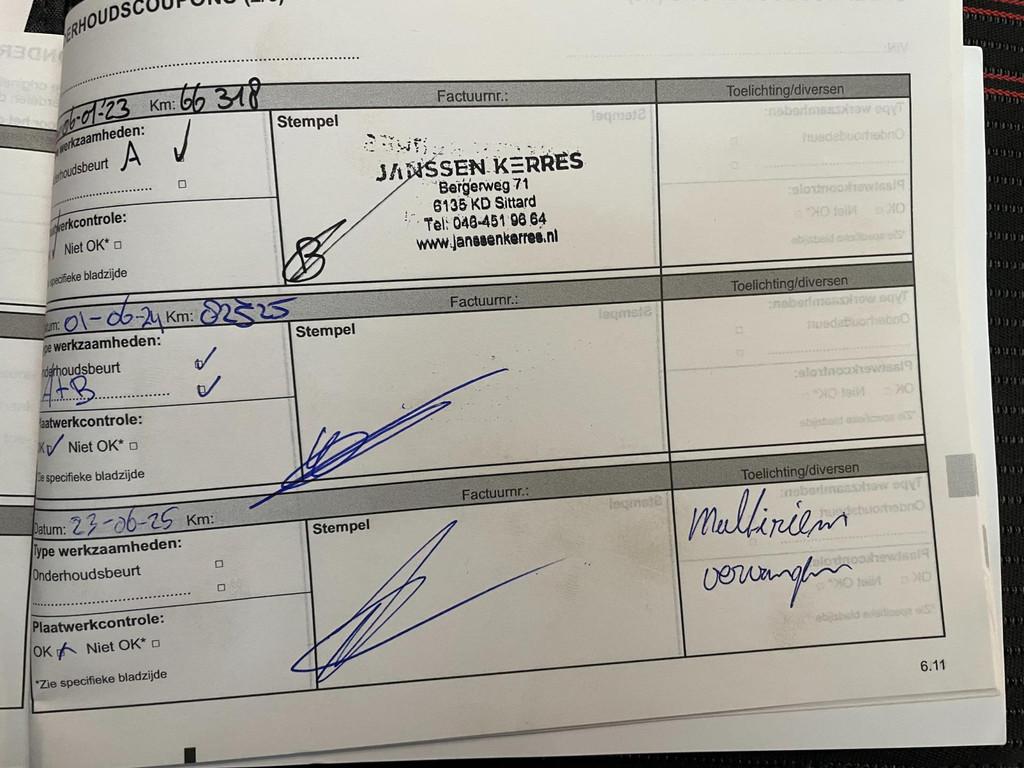 ERHOUDSCOUPONS
06-01-'23 Km: 66 318 Factuurnr.: Toelichting/diversen
werkzaamheden:
houdsbeurt A ✓
werkcontrole:
Niet OK*
specifieke bladzijde
Stempel
JANSSEN KERRES
Bergerweg 71
6135 KD Sittard
Tel: 046-451 96 64
www.janssenkerres.nl
B
um: 01-06-24 Km: 82525 Factuurnr.: Toelichting/diversen
pe werkzaamheden:
nderhoudsbeurt ✓
A+B ✓
laatwerkcontrole:
K ✓ Niet OK*
Zie specifieke bladzijde
Stempel
Datum: 23-06-25 Km: Factuurnr.: Toelichting/diversen
Type werkzaamheden:
Onderhoudsbeurt
Plaatwerkcontrole:
OK Niet OK*
*Zie specifieke bladzijde
Stempel
Multiriem
vervangen
6.11